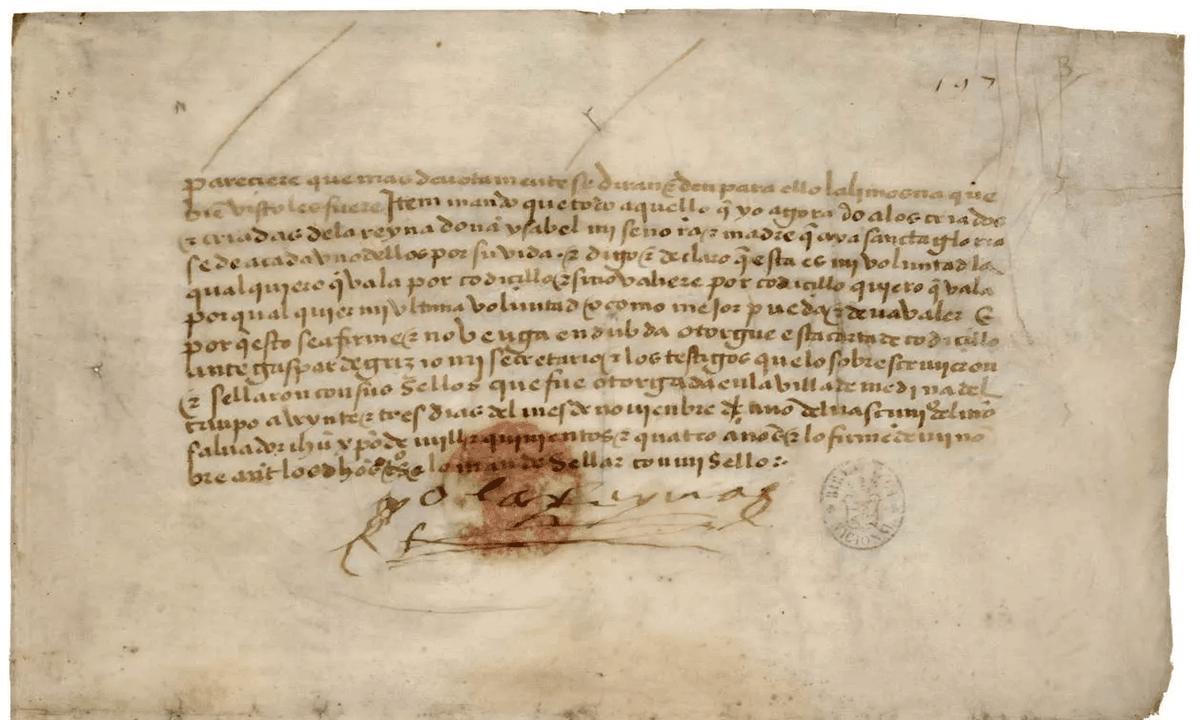 197
pareciere que mas devotamente se diran & den para ello la limosna que
bien visto les fuere Item mando que todo aquello q̃ yo agora do a los criados
& criadas de la reyna doña ysabel mi señora & madre q̃ aya sancta gloria
se de a cada uno dellos por su vida · & digo & declaro q̃ esta es mi voluntad la
qual quiero q̃ vala por codicillo & si no valiere por codicillo quiero q̃ vala
por qual quier mi ultima voluntad o como mejor pueda & deva valer E
por q̃ esto sea firme & no venga en dubda otorgue esta carta de codicillo
ante gaspar de grizio mi secretario & los testigos que lo sobrescrivieron
& sellaron con sus Sellos que fue otorgada en la villa de medina del
campo a veynte & tres dias del mes de noviembre año del nascimi° del ñro
salvador ihũ xp̃o de mill & quinientos & quatro años & lo firme de mi nõ
bre ante los dhos t°s & lo mande Sellar con mi Sello :·
yo la Reyna
BIBLIOTECA NACIONAL